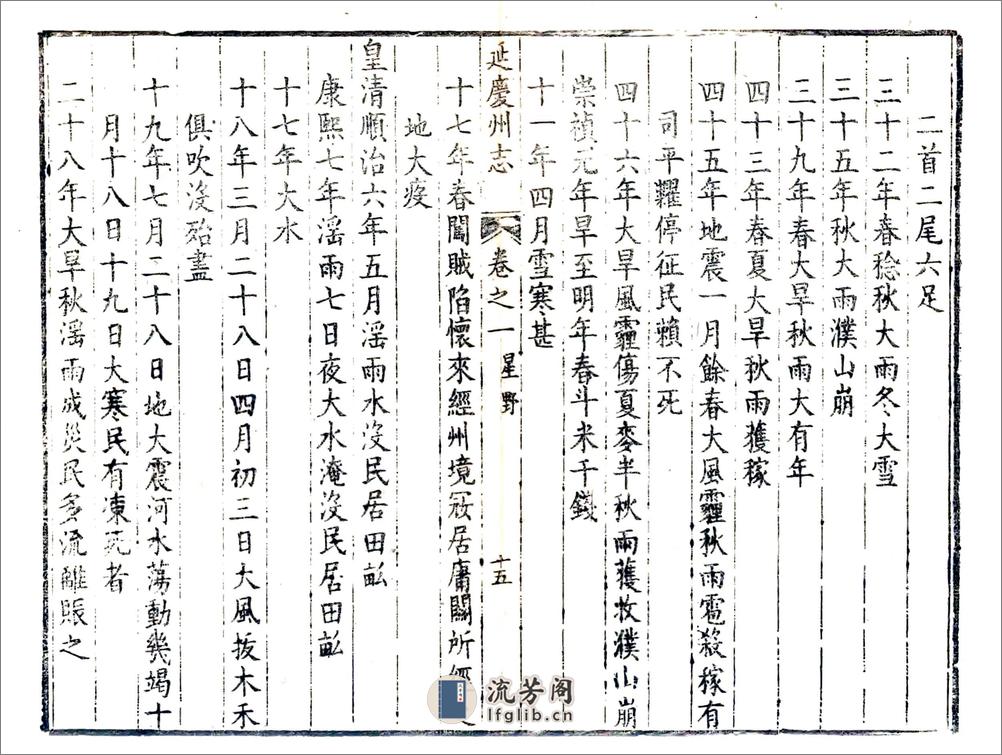 二首二尾六足
三十二年春稔秋大雨冬大雪
三十五年秋大雨濮山崩
三十九年春大旱秋雨大有年
四十三年春夏大旱秋雨獲稼
四十五年地震一月餘春大風霾秋雨雹殺稼有
司平糶停征民賴不死
四十六年大旱風霾傷夏麥半秋雨獲牧濮山崩
崇禎元年旱至明年春斗米千錢
十一年四月雪寒甚
十七年春闖賊陷懷來經州境寇居庸關所經
地大疫
延慶州志 卷之一 星野 十五
皇清順治六年五月滛雨水没民居田畝
康熙七年滛雨七日夜大水淹没民居田畝
十七年大水
十八年三月二十八日四月初三日大風拔木禾
俱吹没殆盡
十九年七月二十八日地大震河水蕩動幾竭十
月十八日十九日大寒民有凍死者
二十八年大旱秋滛雨成災民多流離賑之
流芳阁
lfglib.cn